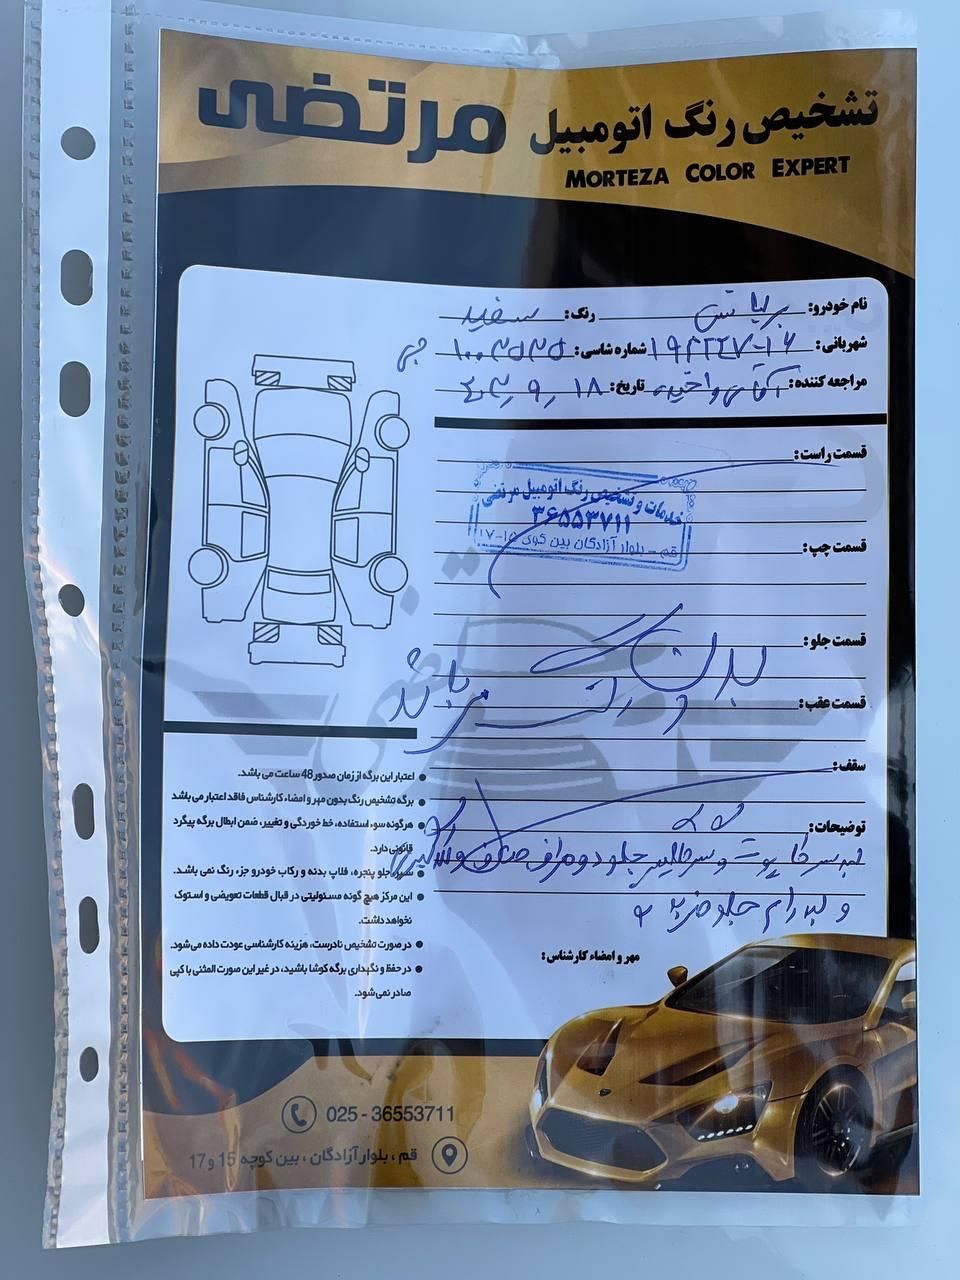 تشخیص رنگ اتومبیل مرتضی
MORTEZA COLOR EXPERT
نام خودرو: برلیانس رنگ: سفید
شهربانی: شماره شاسی:
مراجعه کننده: آقای تاریخ: ۱۸
قسمت راست:
خدمات و تشخیص رنگ اتومبیل مرتضی
۳۶۵۵۳۷۱۱
قم - بلوار آزادگان بین کوی ۱۵-۱۷
قسمت چپ:
قسمت جلو:
بدون رنگ
قسمت عقب:
می باشد
سقف:
توضیحات:
لبه سر کاپوت و سر گلگیر جلو دو طرف
و جلو
مهر و امضاء کارشناس:
اعتبار این برگه از زمان صدور 48 ساعت می باشد.
برگه تشخیص رنگ بدون مهر و امضاء کارشناس فاقد اعتبار می باشد
هرگونه سوء استفاده، خط خوردگی و تغییر، ضمن ابطال برگه پیگرد
قانونی دارد.
سپر، جلو پنجره، فلاپ بدنه و رکاب خودرو جزء رنگ نمی باشد.
این مرکز هیچ گونه مسئولیتی در قبال قطعات تعویضی و استوک
نخواهد داشت.
در صورت تشخیص نادرست، هزینه کارشناسی عودت داده می شود.
در حفظ و نگهداری برگه کوشا باشید، در غیر این صورت المثنی یا کپی
صادر نمی شود.
025 - 36553711
قم ، بلوار آزادگان ، بین کوچه 15 و 17